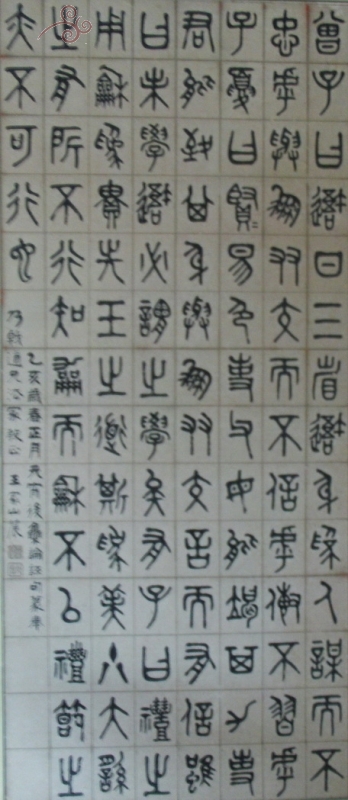 曾子曰吾日三省吾身爲人謀而不
忠乎與朋友交而不信乎傳不習乎
子夏曰賢=易色事父母能竭其力事
君能致其身與朋友交言而有信雖
曰未學吾必謂之學矣有子曰禮之
用龢爲貴先王之道斯爲美小大繇
之有所不行知龢而龢不以禮節之
亦不可行也
乙亥歲春正月後論語句篆奉
乃道兄法家教正